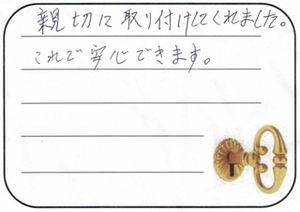 親切に取り付けしてくれました。
これで安心できます。